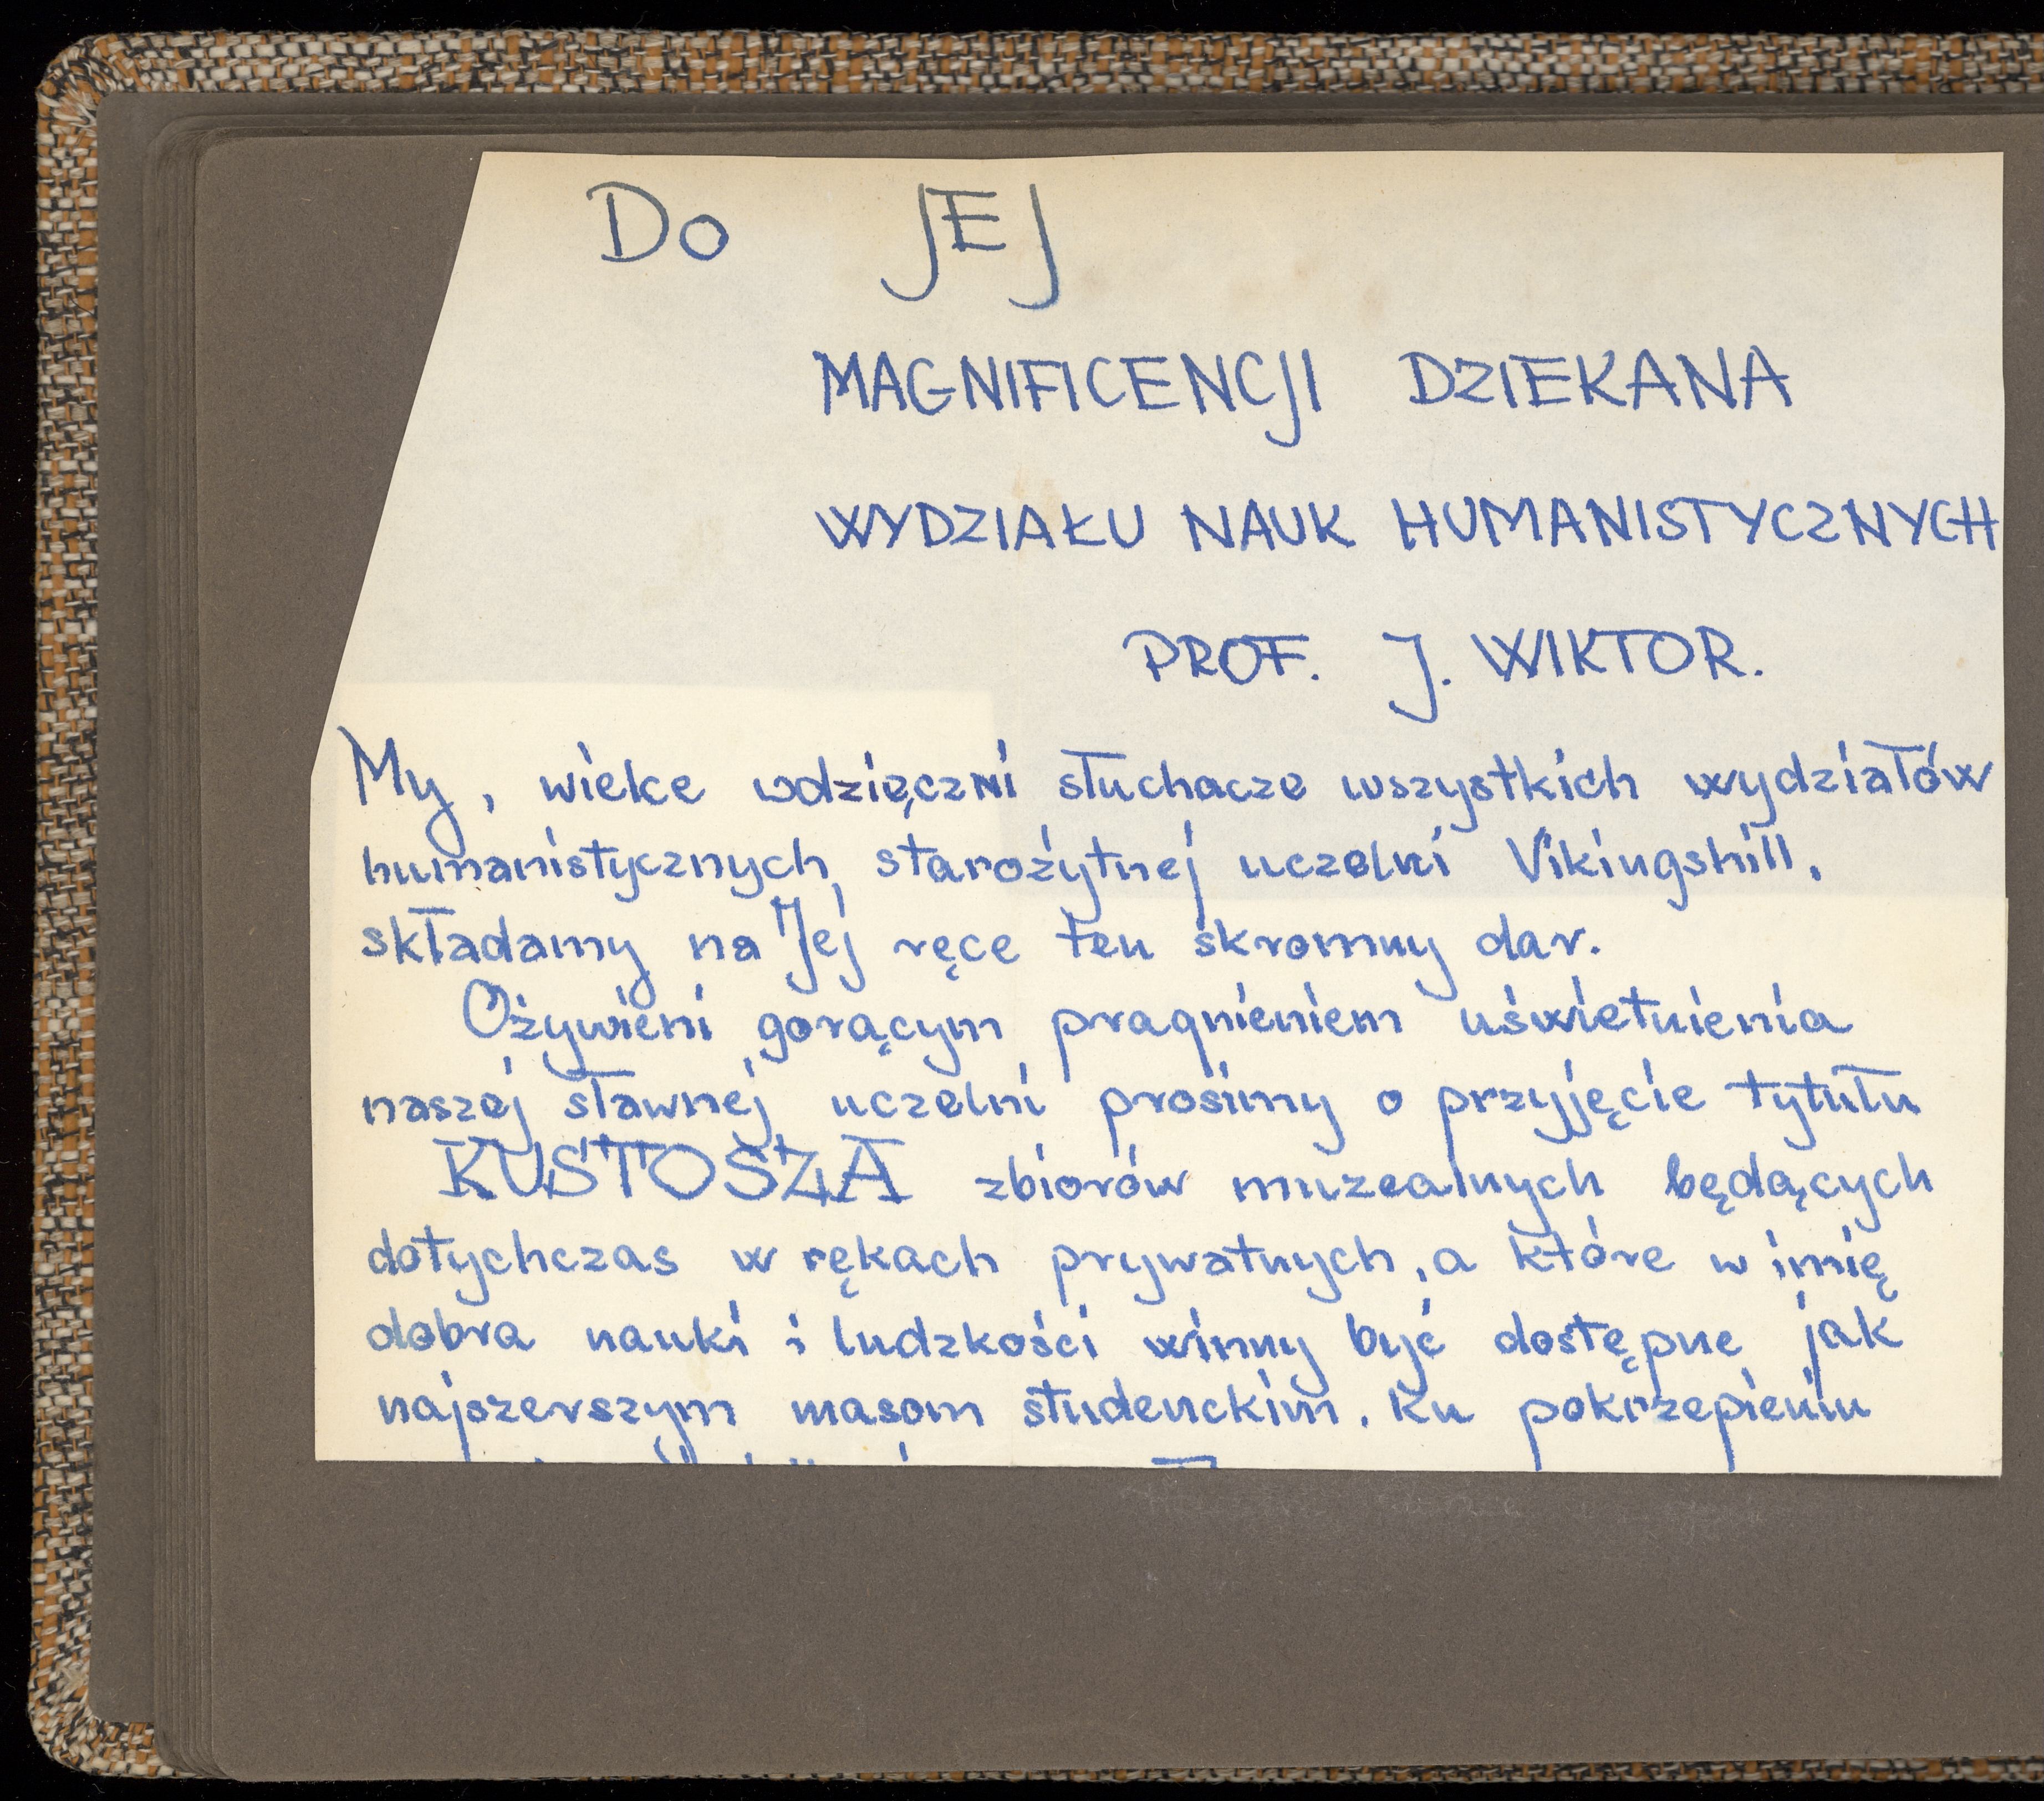 Do JEJ
MAGNIFICENCJI DZIEKANA
WYDZIAŁU NAUK HUMANISTYCZNYCH
PROF. J. WIKTOR.
My, wielce wdzięczni słuchacze wszystkich wydziałów
humanistycznych starożytnej uczelni Vikingshill,
składamy na Jej ręce ten skromny dar.
Ożywieni gorącym pragnieniem uświetnienia
naszej sławnej uczelni prosimy o przyjęcie tytułu
KUSTOSZA zbiorów muzealnych będących
dotychczas w rękach prywatnych, a które w imię
dobra nauki i ludzkości winny być dostępne jak
najszerszym masom studenckim. Ku pokrzepieniu